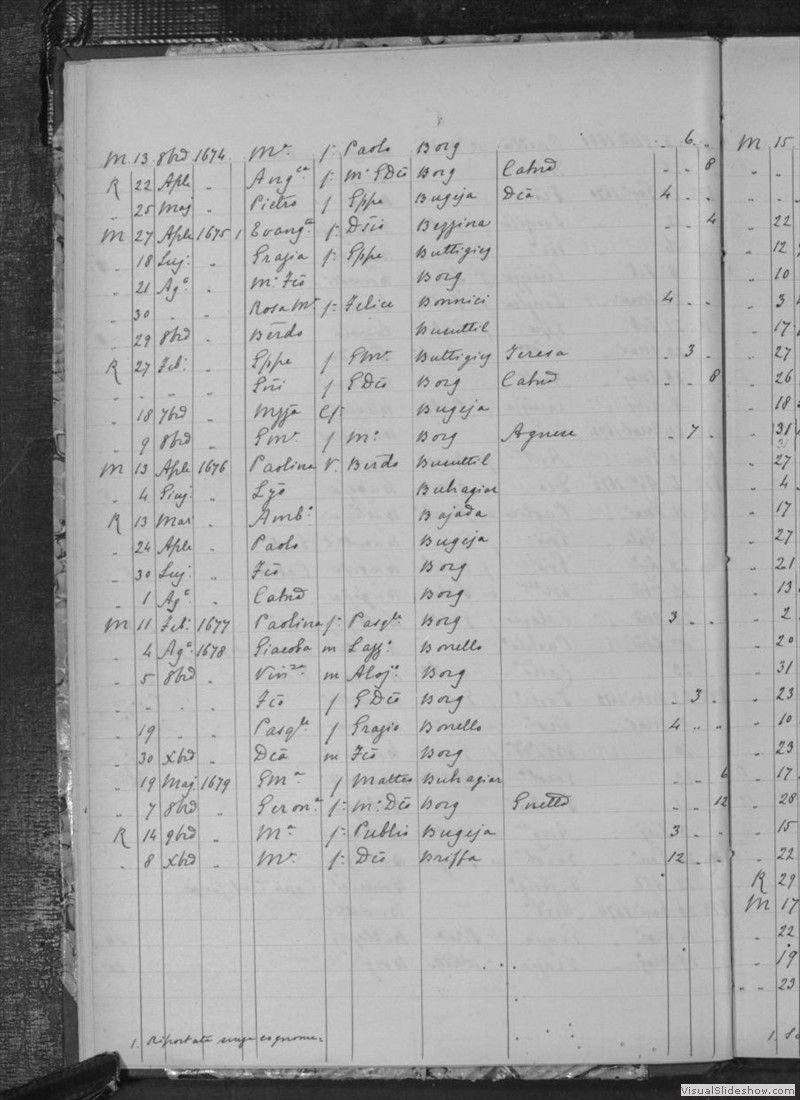 M 13 8brd 1674 Ma f. Paolo Borg 6 . .
R 22 Aple " Angca f. Mo GDco Borg Catnd . . 8
" 25 Maj " Pietro f Gppe Bugeja Dca 4 . .
M 27 Aple 1675 1 Evangta f. Dsio Bezzina . . 4
" 18 Lug: " Grazia f. Gppe Buttigieg
" 21 Ago " Mo Fco Borg
" 30 " " Rosa Ma f. Felice Bonnici 4 . .
" 29 8brd " Berdo Busuttil
R 27 Feb: " Gppe f GMa Buttigieg Teresa . 3 .
" " " " f GDco Borg Catnd . . 8
" 18 7brd " Bugeja
" 9 8brd " GMa f Mo Borg Agnese . 7 .
M 13 Aple 1676 Paolina v. Berdo Busuttil
" 4 Giug: " Buhagiar
R 13 Mar " Ambo Bajada
" 24 Aple " Paolo Bugeja
" 30 Lug: " Fco Borg
" 1 Ago " Catnd Borg
M 11 Feb: 1677 Paolina f: Pasqle Borg 3 . .
" 4 Ago 1678 Giacoba m Lazzo Bonello
" 5 8brd " Vinza m Alojo Borg
" " " " Fco f GDco Borg . 3 .
" 19 " " Pasqle f Grazio Bonello 4 " .
" 30 Xbrd " Dca m Fco Borg
" 19 Maj 1679 GMa f Matteo Buhagiar . . 6
" 7 8brd " Gerona f. Mo Dco Borg . . 12
R 14 9brd " Ma f. Publio Bugeja 3 . .
" 8 Xbrd " Ma f. Dco Briffa 12 . .
1. Riportata senza cognome.
M 15
" "
" "
" 22
" 12
" 10
" 3
" 17
" 27
" 26
" 18
" 31
31
" 27
" 4
" 17
" 27
" 21
" 13
" 2
" 20
" 31
" 23
" 10
" 23
" 17
" 28
" 15
" 22
R 29
M 17
" 22
" 19
" 23
VisualSlideshow.com